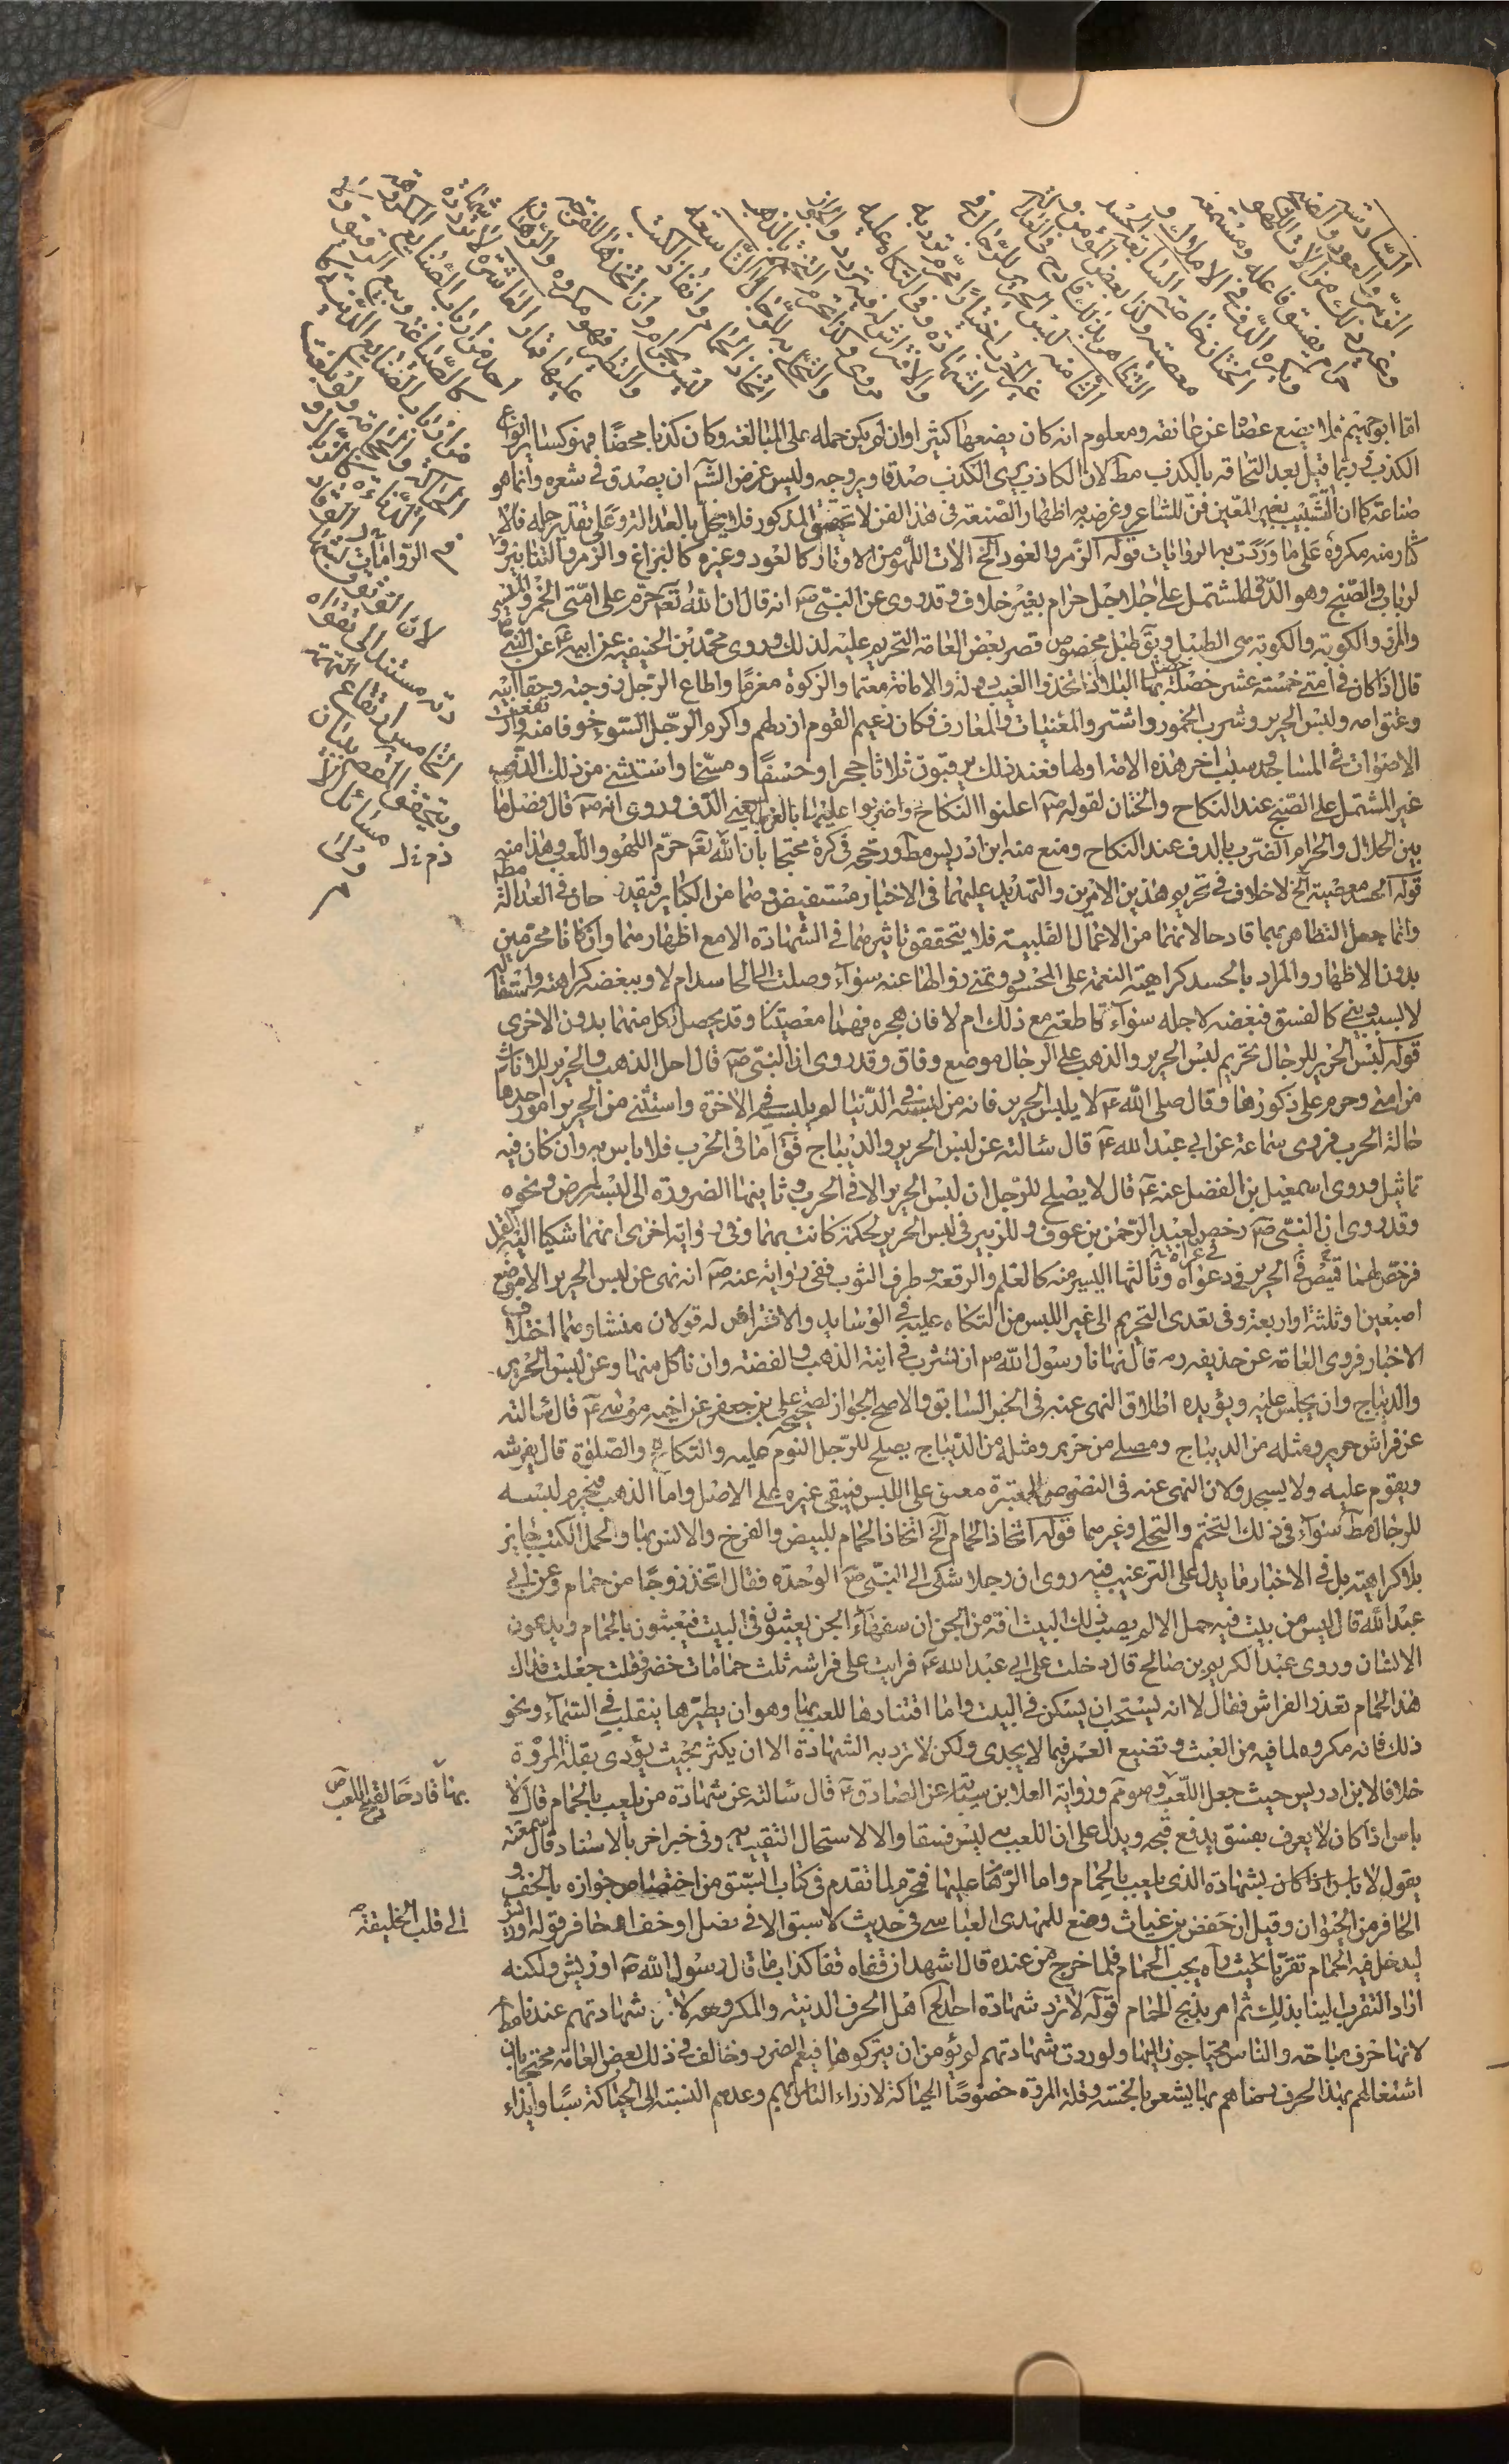 السادسة
الزمر والعود والصنج
وغير ذلك من آلات اللهو
حرام يفسق فاعله ومستمعه
ويكره الدف في الاملاك و
الختان خاصة السابعة الحسد
معصية وكذا بغض المؤمن و
التظاهر بذلك قادح في العدالة
الثامنة لبس الحرير للرجال في
غير الحرب اختيارا محرم ترد به
الشهادة وفي التكاه عليه
والافتراش له تردد والجواز
مروى وكذا يحرم التختم بالذهب
والتحلي به للرجال التاسعة
اتخاذ الحمام وانفاذ الكتب
ليس بحرام وان اتخذها للفرجة
والتطير فهو مكروه والرهان
عليها قمار العاشرة لا ترد شهادة
احد من ارباب الصنايع المكروهة
كالصياغة وبيع الرقيق ولا
من ارباب الصنايع الدنية كا
لحياكة والحجامة ولو بلغت
الدناءة كالزبال و
الوقاد
لان الوثوق
مستند الى تقواه
الخامس ارتفاع التهمة
ويتحقق المقصد ببيان
مسائل الاولى
اما ابو جهيم فلا يضع عصاه عن عاتقه ومعلوم انه كان يضعها كثيرا وان لم يكن حمله على المبالغة وكان كذبا محضا فهو كساير انواع
الكذب وربما قيل بعدم التحاقه بالكذب مطلقا لان الكاذب يرى الكذب صدقا ويروجه وليس غرض الشاعر ان يصدق في شعره وانما هو
صناعة كما ان التشبيب بغير المعين فن للشاعر وغرضه به اظهار الصنعة في هذا الفن لا تحقيق المذكور فلا يخل بالعدالة وعلى تقدير حله فالا
كثار منه مكروه على ما وردت به الروايات قوله الزمر والعود الخ الات اللهو من الاوتار كالعود وغيره كاليراع والزمر والطنابير و
الرباب والصنج وهو الدف المشتمل على الجلاجل حرام بغير خلاف وقد روى عن النبي ص انه قال ان الله تعالى حرم على امتي الخمر والميسر
والمزر والكوبة والكوبة هي الطبل ويق طبل مخصوص قصر بعض العامة التحريم عليه لذلك وروى محمد بن الحنفية عن ابيه ع عن النبي ص
قال اذا كان في امتي خمسة عشر خصلة حل بها البلاء اذا اتخذوا الغيبة دولة والامانة مغنما والزكوة مغرما واطاع الرجل زوجته وجفا ابيه
وعق امه ولبس الحرير وشرب الخمور واشتروا المغنيات والمعارف وكان زعيم القوم ارذلهم واكرم الرجل السوء خوفا منه وارتفعت
الاصوات في المساجد وسب اخر هذه الامة اولها فعند ذلك يرقبون ثلاثا حجرا وخسفا ومسخا واستثنى من ذلك الدف
غير المشتمل على الصنج عند النكاح والختان لقوله ص اعلنوا النكاح واضربوا عليها بالغربال يعني الدف وروى انه ص قال فصل ما
بين الحلال والحرام الضرب بالدف عند النكاح ومنع منه ابن ادريس مطلقا ورجحه في كره محتجا بان الله تعالى حرم اللهو واللعب وهذا منه
قوله الحسد معصية الخ لا خلاف في تحريم هذين الامرين والتهديد عليهما في الاخبار مستفيض وهما من الكباير فيقدحان في العدالة مطلقا
وانما جعل التظاهر بهما قادحا لانهما من الاعمال القلبية فلا يتحقق تاثيرهما في الشهادة الا مع اظهارهما وان كانا محرمين
بدون الاظهار والمراد بالحسد كراهية النعمة على المحسود وتمنى زوالها عنه سواء وصلت الى الحاسد ام لا وببغضه كراهته واستثقاله
لا لسبب ديني كالفسق فيبغضه لاجله سواء قاطعه مع ذلك ام لا فان هجره فهما معصيتان وقد يحصل كل منهما بدون الاخرى
قوله لبس الحرير للرجال تحريم لبس الحرير والذهب على الرجال موضع وفاق وقد روى ان النبي ص قال احل الذهب والحرير للاناث
من امتي وحرم على ذكورها وقال صلى الله عليه لا يلبس الحرير فانه من لبسه في الدنيا لم يلبسه في الاخرة واستثنى من الحرير امور احدها
حالة الحرب فروى سماعة عن ابي عبد الله ع قال سالته عن لبس الحرير والديباج فق اما في الحرب فلا باس به وان كان فيه
تماثيل وروى اسمعيل بن الفضل عنه ع قال لا يصلح للرجل ان لبس الحرير الا في الحرب وثانيها الضرورة الى لبسه لمرض ونحوه
وقد روى ان النبي ص رخص لعبد الرحمن بن عوف وللزبير في لبس الحرير لحكة كانت بهما وفي رواية اخرى انهما شكيا اليه القمل
فرخص لهما في قميص الحرير في غزاة وثالثها اليسير منه كالعلم والرقعة وطرف الثوب ففي رواية عنه ص انه نهى عن لبس الحرير الا موضع
اصبعين او ثلثة او اربعة وفي تعدى التحريم الى غير اللبس من التكاه عليه في الوسايد والافتراش له قولان منشاوهما اختلاف
الاخبار فروى العامة عن حذيفة ره قال نهانا رسول الله ص ان نشرب في انية الذهب والفضة وان ناكل منها وعن لبس الحرير
والديباج وان يجلس عليه ويؤيده اطلاق النهى عنه في الخبر السابق والاصح الجواز لصحيحة على بن جعفر عن اخيه موسى ع قال سالته
عن فراش حرير ومثله من الديباج ومصلى من حرير ومثله من الديباج يصلح للرجل النوم عليه والتكاه والصلوة قال يفرشه
ويقوم عليه ولا يسجد ولان النهى عنه في النصوص المعتبرة معلق على اللبس فيبقى غيره على الاصل واما الذهب فيحرم لبسه
للرجال مطلقا سواء في ذلك التختم والتحلي وغيرهما قوله اتخاذ الحمام الخ اتخاذ الحمام للبيض والفرخ والانس بها ولحمل الكتب جايز
بلا كراهية بل في الاخبار ما يدل على الترغيب فيه روى ان رجلا شكى الى النبي ص الوحدة فقال اتخذ زوجا من حمام وعن ابي
عبد الله قال ليس من بيت فيه حمام الا لم يصب ذلك البيت افة من الجن ان سفهاء الجن يعبثون في البيت فيعبثون بالحمام ويدعون
الانسان وروى عبد الكريم بن صالح قال دخلت على ابي عبد الله ع فرايت على فراشه ثلث حمامات خضر فقلت جعلت فداك
هذا الحمام تقذر الفراش فقال لا انه يستحب ان يسكن في البيت واما اقتناءها للعب بها وهو ان يطيرها ينقلب في السماء ونحو
ذلك فانه مكروه لما فيه من العبث وتضييع العمر فيما لا يجدى ولكن لا ترد به الشهادة الا ان يكثر بحيث يؤدى بقلة المروة
خلافا لابن ادريس حيث جعل اللعب بها قادحا لقبح اللعب ورواية العلا بن سيابة عن الصادق ع قال سالته عن شهادة من يلعب بالحمام قال لا
باس اذا كان لا يعرف بفسق يدفع قبحه ويدل على ان اللعب به ليس فسقا والا لاستحال التقييد وفي خبر اخر بالاسناد قال سمعته
يقول لا باس اذا كان بشهادة الذى يلعب بالحمام واما الرهان عليها فمحرم لما تقدم في كتاب السبق من اختصاص جوازه بالخف و
الحافر من الحيوان وقيل ان حفص بن غياث وضع للمهدى العباسي في حديث لا سبق الا في نصل او خف او حافر قوله او ريش
ليدخل فيه الحمام تقربا حيث رآه يحب الحمام فلما خرج من عنده قال اشهد ان قفاه قفا كذاب ما قال رسول الله ص او ريش ولكنه
اراد التقرب الينا بذلك ثم امر بذبح الحمام قوله لا ترد شهادة احد الخ اهل الحرف الدنية والمكروهة لا ترد شهادتهم عندنا مطلقا
لانها حرف مباحة والناس محتاجون اليها ولو ردت شهادتهم لم يؤمن ان يتركوها فيعم الضرر وخالف في ذلك بعض العامة محتجا بان
اشتغالهم بهذا الحرف ورضاهم بها يشعر بالخسة وقلة المروة خصوصا الحياكة لازراء الناس بهم وعدهم النسبة الى الحياكة سبا وايذاء
بها قادحا لقبح اللعب
الى قلب الخليفة